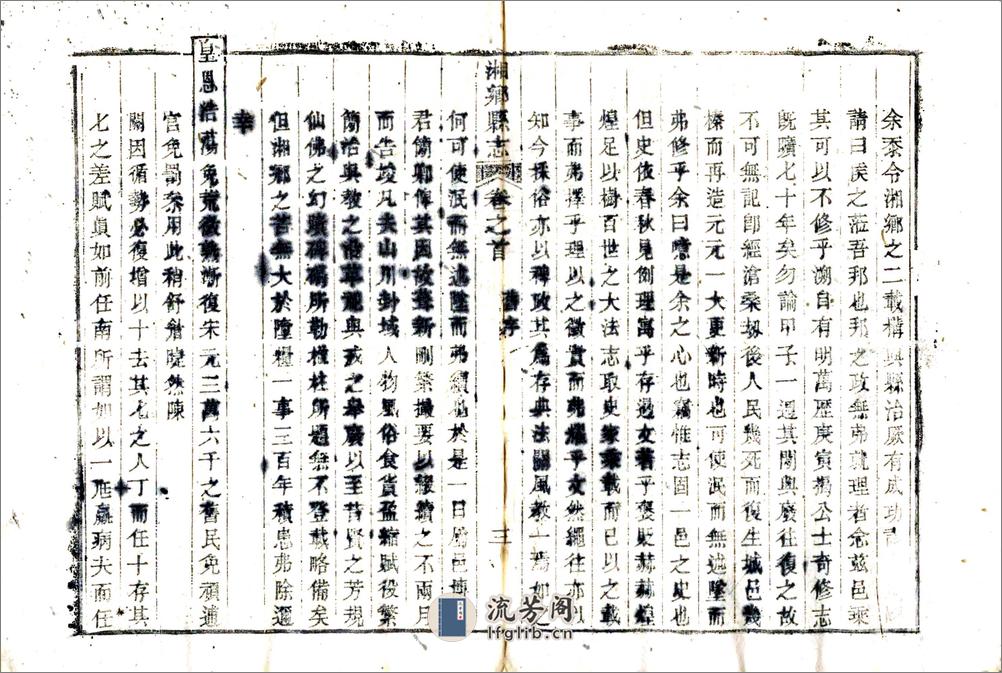 余忝令湘鄉之二載構興縣治厥有成功
請曰侯之涖吾邦也邦之政無弗就理者念茲邑乘
其可以不修乎溯自有明萬歷庚寅揭公士奇修志
既曠七十年矣勿論甲子一週其間興廢往復之故
不可無記卽經滄桑刼後人民幾死而復生城邑幾
榛而再造元元一大更新時也可使泯而無述墜而
弗修乎余曰噫是余之心也竊惟志固一邑之史也
但史依春秋見例理寓乎存過文著乎褒貶赫赫煌
煌足以樹百世之大法志取史乘載而已以之載
事而弗擇乎理以之徵實而弗燿乎文然繩往亦以
知今採俗亦以稗政其爲存典法關風教一焉如之
湘鄉縣志 卷之首 舊序 三
何可使泯而無述墜而弗續也於是一日屬邑博
君簡卿偉其因故葺新刪繁撮要以綴續之不兩月
而告竣凡夫山川卦域人物風俗食貨盈縮賦役繁
簡治與教之沿革祀與戎之舉廢以至昔賢之芳規
仙佛之幻蹟碑碣所勒楹柱所題無不登載略備矣
但湘鄉之苦無大於墮糧一事三百年積患弗除邇
幸
皇恩浩蕩免荒徵熟漸復宋元二萬六千之舊民免頑逋
官免罰叅用此稍舒詹噠然陳
關因循勢必復增以十去其七之人丁而任十存其
七之差賦眞如前任南所謂如以一尫羸病夫而任
流芳阁
lfglib.cn